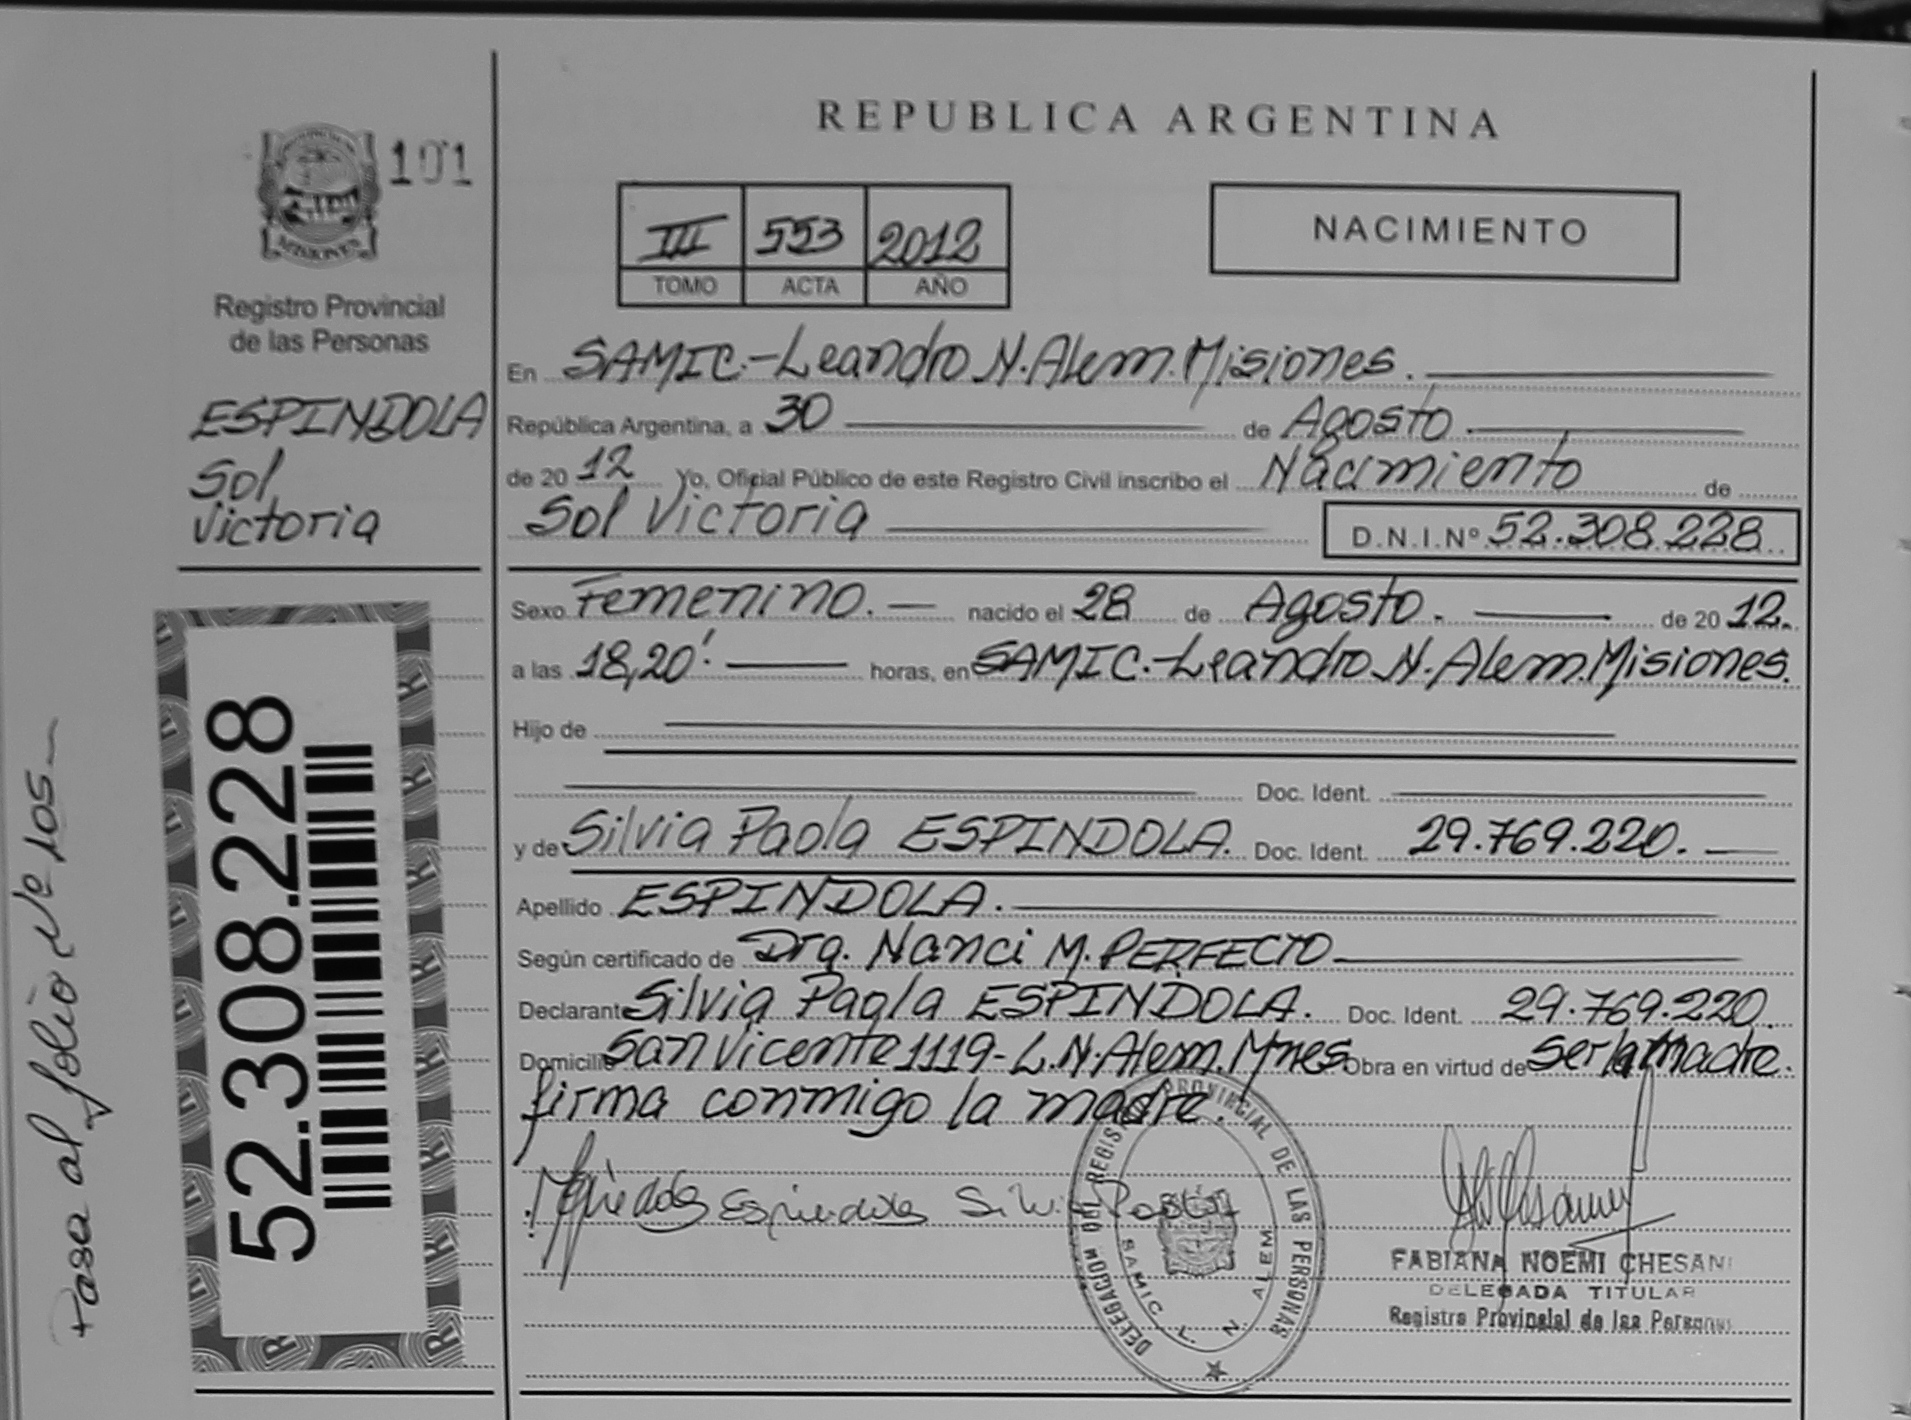 REPUBLICA ARGENTINA
101
MISIONES
Registro Provincial
de las Personas
III 553 2012
TOMO ACTA AÑO
NACIMIENTO
ESPINDOLA
Sol
Victoria
En SAMIC.-Leandro N. Alem. Misiones.
República Argentina, a 30 de Agosto.
de 20 12 Yo, Oficial Público de este Registro Civil inscribo el Nacimiento de
Sol Victoria D.N.I.Nº 52.308.228
Sexo Femenino. nacido el 28 de Agosto. de 20 12.
a las 18,20'. horas, en SAMIC.-Leandro N. Alem. Misiones.
Hijo de
Doc. Ident.
y de Silvia Paola ESPINDOLA. Doc. Ident. 29.769.220.
Apellido ESPINDOLA.
Según certificado de Dra. Nanci M. PERFECTO
Declarante Silvia Paola ESPINDOLA. Doc. Ident. 29.769.220.
Domicilio San Vicente 1119-L.N. Alem. Mnes Obra en virtud de ser la madre.
firma conmigo la madre.
Espindola Silvia Paola
DELEGACION DEL REGISTRO PROVINCIAL DE LAS PERSONAS
SAMIC L. N. ALEM
FABIANA NOEMI CHESANI
DELEGADA TITULAR
Registro Provincial de las Personas
52.308.228
Pasa al folio Nº